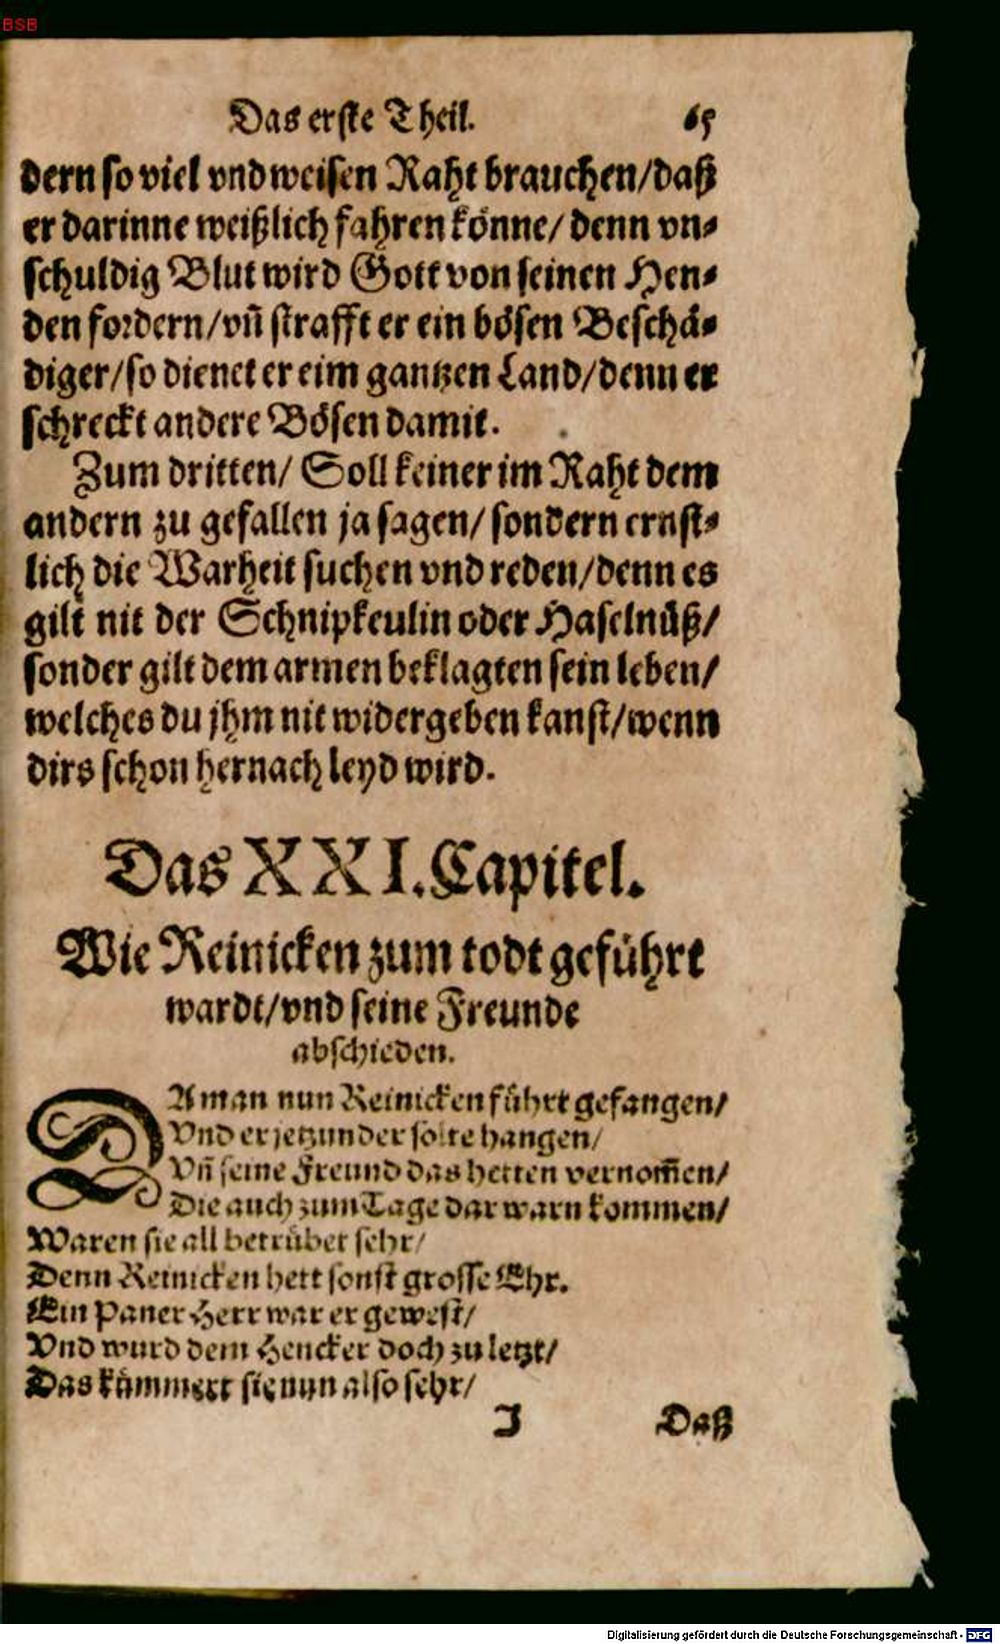 BSB
Das erste Theil. 65
dern so viel vnd weisen Raht brauchen/daß
er darinne weißlich fahren könne/ denn vn-
schuldig Blut wird Gott von seinen Hen-
den fordern/vñ strafft er ein bösen Beschä-
diger/so dienet er eim gantzen Land/denn er
schreckt andere Bösen damit.
Zum dritten/ Soll keiner im Raht dem
andern zu gefallen ja sagen/ sondern ernst-
lich die Warheit suchen vnd reden/denn es
gilt nit der Schnipkeulin oder Haselnüß/
sonder gilt dem armen beklagten sein leben/
welches du jhm nit widergeben kanst/wenn
dirs schon hernach leyd wird.
Das XXI. Capitel.
Wie Reinicken zum todt geführt
wardt/vnd seine Freunde
abschieden.
DA man nun Reinicken führt gefangen/
Vnd er jetzunder solte hangen/
Vñ seine Freund das hetten vernom̃en/
Die auch zum Tage dar warn kommen/
Waren sie all betrübet sehr/
Denn Reinicken hett sonst grosse Ehr.
Ein Paner Herr war er gewest/
Vnd wurd dem Hencker doch zu letzt/
Das kümmert sie nun also sehr/
I Daß
Digitalisierung gefördert durch die Deutsche Forschungsgemeinschaft - DFG